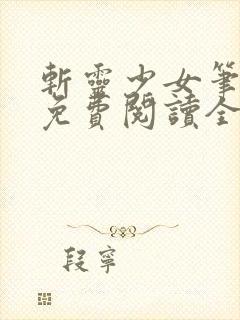 斬靈少女筆
免費閱讀全
段寧